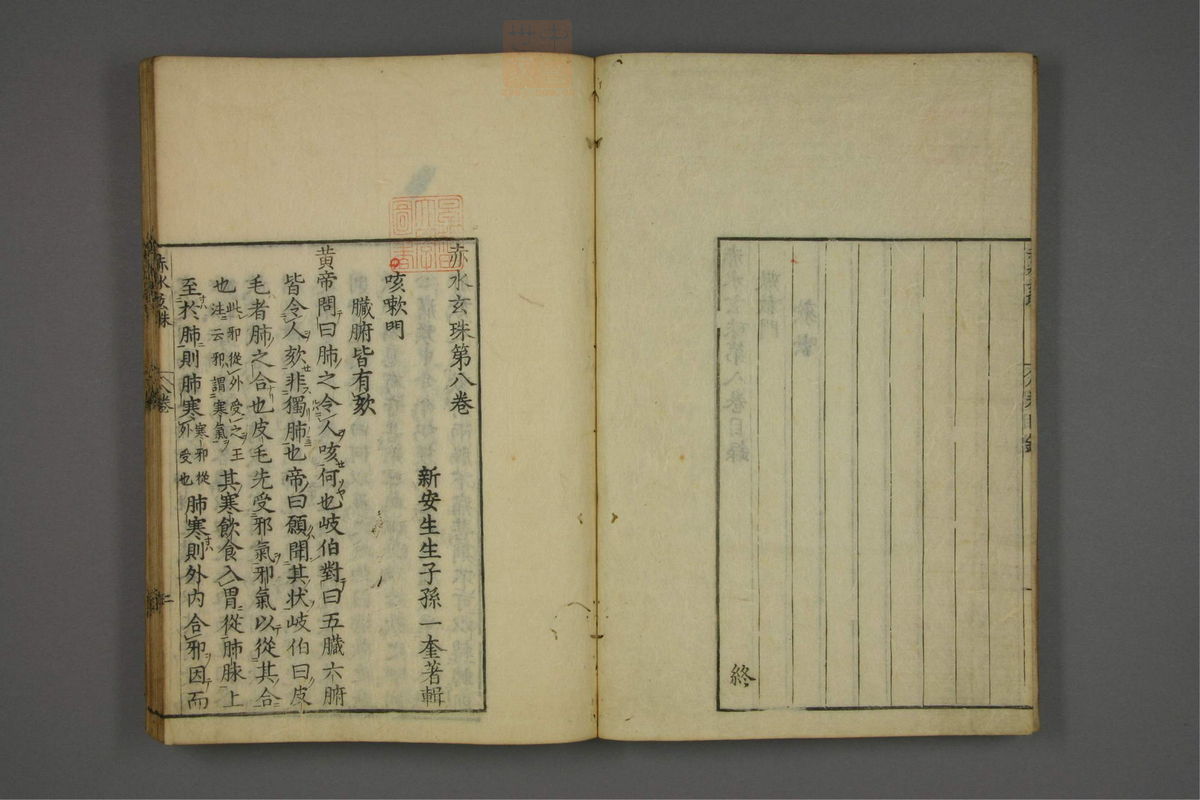 終
赤水玄珠第八卷
新安生生子孫一奎著輯
咳嗽門
臟腑皆有欬
黃帝問曰肺之令人咳何也岐伯對曰五臟六腑
皆令人欬非獨肺也帝曰願聞其状岐伯曰皮
毛者肺之合也皮毛先受邪氣邪氣以從其合
也此邪從外受之王注云邪謂寒氣其寒飲食入胃從肺脉上
至於肺則肺寒寒邪從外受也肺寒則外内合邪因而
赤水玄珠
八卷
二